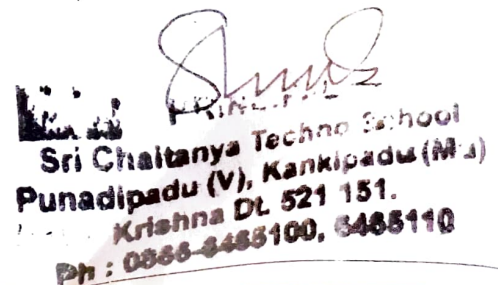 PRINCIPAL
Sri Chaitanya Techno School
Punadipadu (V), Kankipadu (M)
Krishna Dt. 521 151.
Ph : 0866-6465100, 6465110